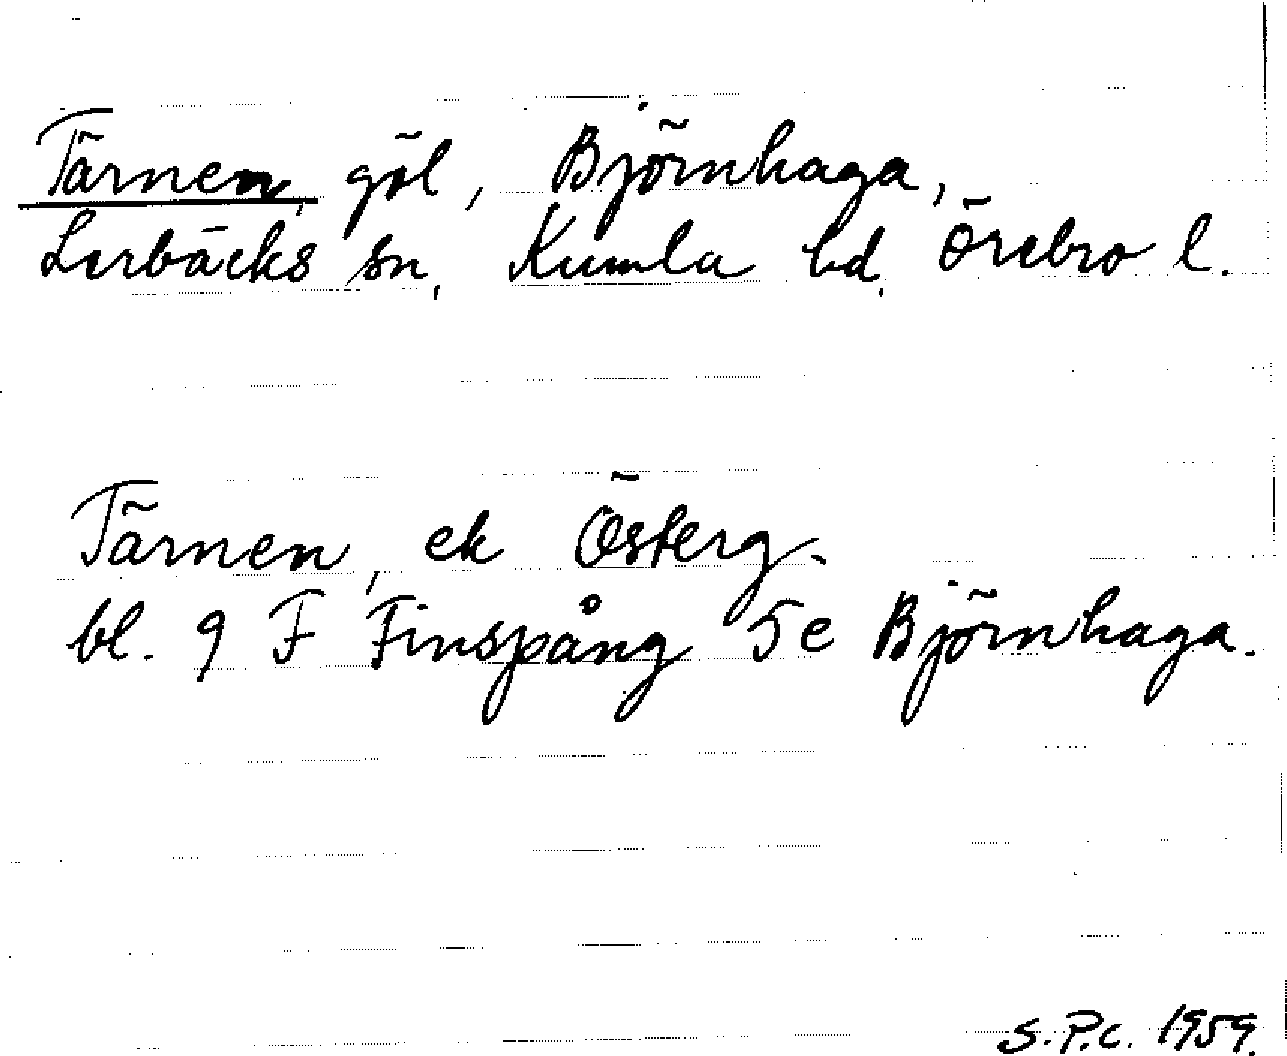 Tärnen, göl, Björnhaga,
Lerbäcks sn, Kumla hd, Örebro l.
Tärnen, ek Österg.
bl. 9 F Finspång 5e Björnhaga.
S.P.C. 1959.